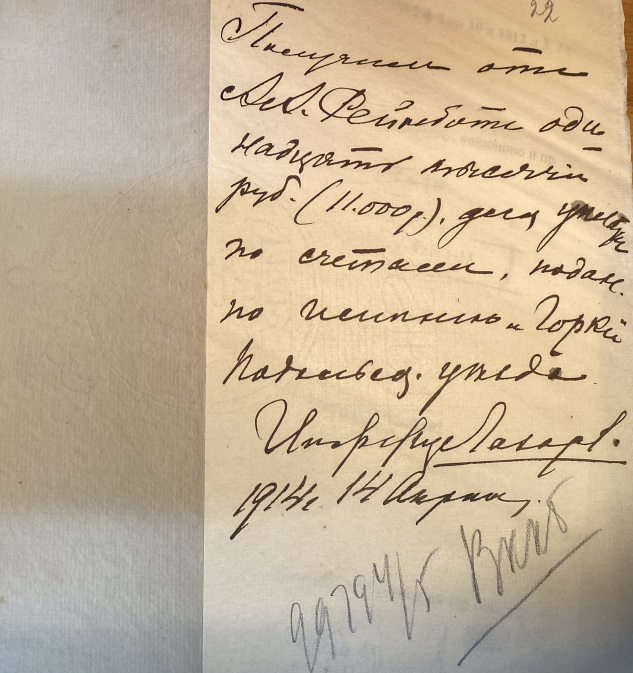 22
Получилъ отъ
А.А. Рейнботъ оди-
надцать тысячъ
руб. (11.000 р.), для уплаты
по счетамъ, подан.
по имѣнію „Горки"
Подольск. уѣзда
Лазарев.
1914 г. 14 Апрѣля.